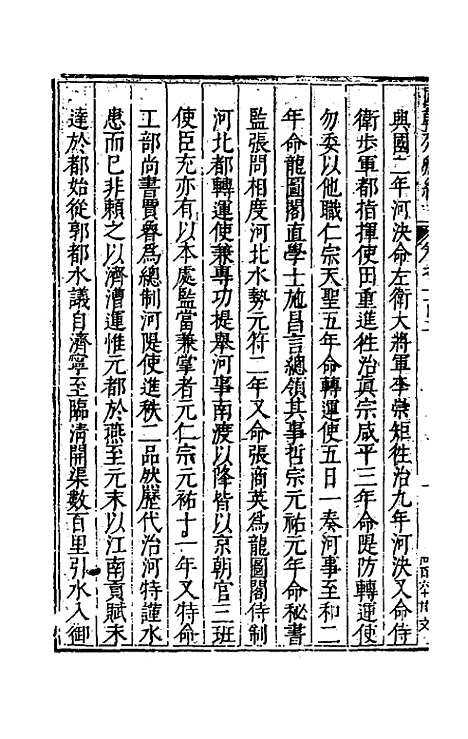 興國二年河決命左衛大將軍李崇矩徃治九年河決又命侍
衛步軍都指揮使田重進徃治眞宗咸平三年命隄防轉運使
勿委以他職仁宗天聖五年命轉運使五日一奏河事至和二
年命龍圖閣直學士施昌言總領其事哲宗元祐元年命秘書
監張問相度河北水勢元符二年又命張商英爲龍圖閣待制
河北都轉運使兼專功提舉河事南渡以降皆以京朝官三班
使臣充亦有以本處監當兼掌者元仁宗元祐十一年又特命
工部尚書賈魯爲總制河隄使進秩二品然歷代治河特謹水
患而巳非頼之以濟漕運惟元都於燕至元末以江南貢賦未
達於都始從郭都水議自濟寧至臨清開渠數百里引水入御